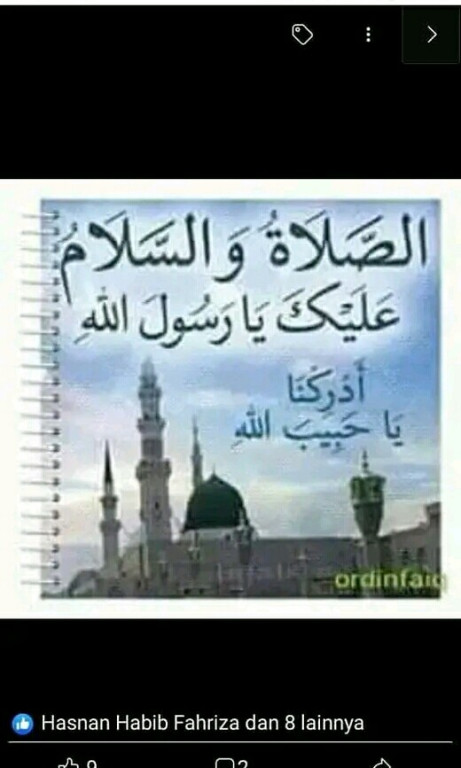 الصَّلَاةُ وَالسَّلَامُ
عَلَيْكَ يَا رَسُولَ اللهِ
أَدْرِكْنَا
يَا حَبِيبَ اللهِ
ordinfaiq
Hasnan Habib Fahriza dan 8 lainnya
9
2